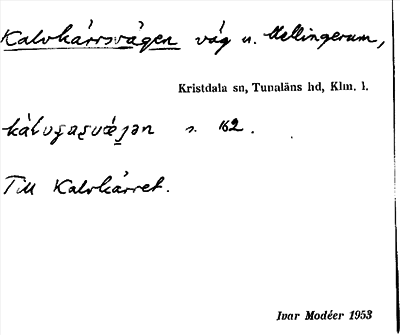 Kalvkärrsvägen väg u. Mellingerum,
Kristdala sn, Tunaläns hd, Klm. l.
s. 162.
Till Kalvkärret.
Ivar Modéer 1953